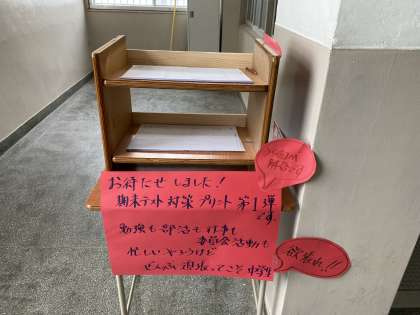 お待たせしました！
期末テスト対策プリント 第1弾
です。
勉強も部活も行事も
委員会活動も
忙しいやろうけど
ぜんぶ頑張ってこそ中学生
欲張れ!!